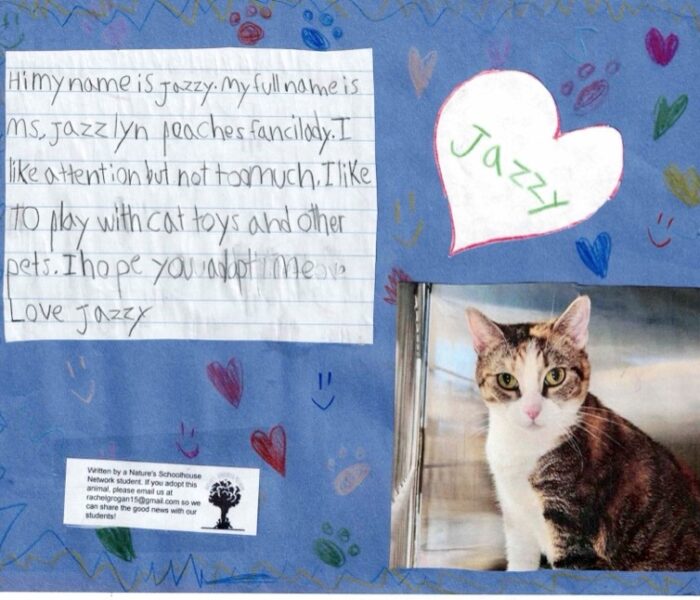 Hi my name is Jazzy. My full name is
ms. jazzlyn peaches fancilady. I
like attention but not too much. I like
TO play with cat toys and other
pets. I hope you adopt me
Love Jazzy
Jazzy
Written by a Nature's Schoolhouse
Network student. If you adopt this
animal, please email us at
rachelgrogan15@gmail.com so we
can share the good news with our
students!